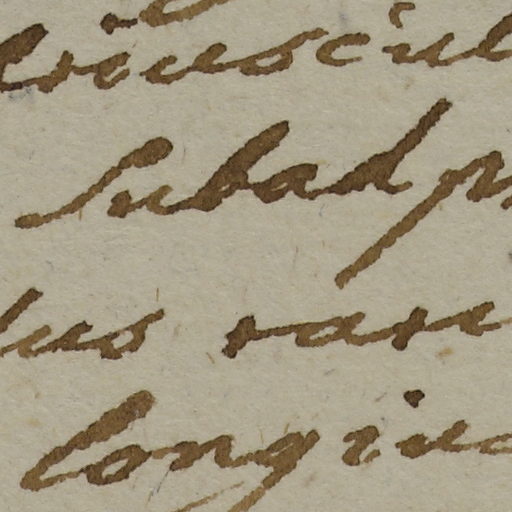 briuscul
subadpr
lus rare
longius